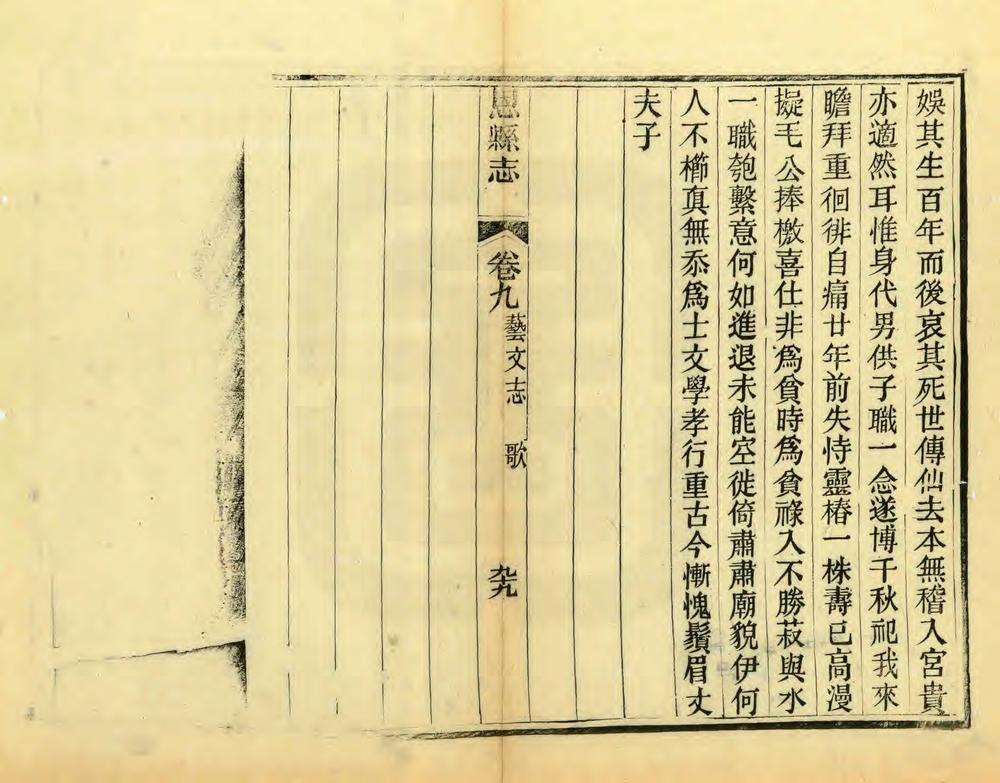 娯其生百年而後哀其死世傳仙去本無稽入宮貴
亦適然耳惟身代男供子職一念遂博千秋祀我來
瞻拜重徊徘自痛廿年前失恃靈椿一株壽已高漫
擬毛公捧檄喜仕非爲貧時爲貧祿入不勝菽與水
一職匏繫意何如進退未能空徙倚肅肅廟貌伊何
人不櫛眞無忝爲士文學孝行重古今慚愧鬚眉丈
夫子
恩縣志
卷九
藝文志 歌
九九